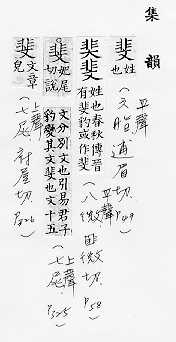 集韻
斐 姓也(平聲 六脂 逋眉切 P49)
奜斐 姓也春秋傳晉
有斐豹或作斐(平聲 八微 匪微切 P58)
斐 妃尾切說
文分別文也引易君子
豹變其文斐也文十五(上聲 七尾 P325)
斐 文章皃(上聲 七尾 府尾切 P326)